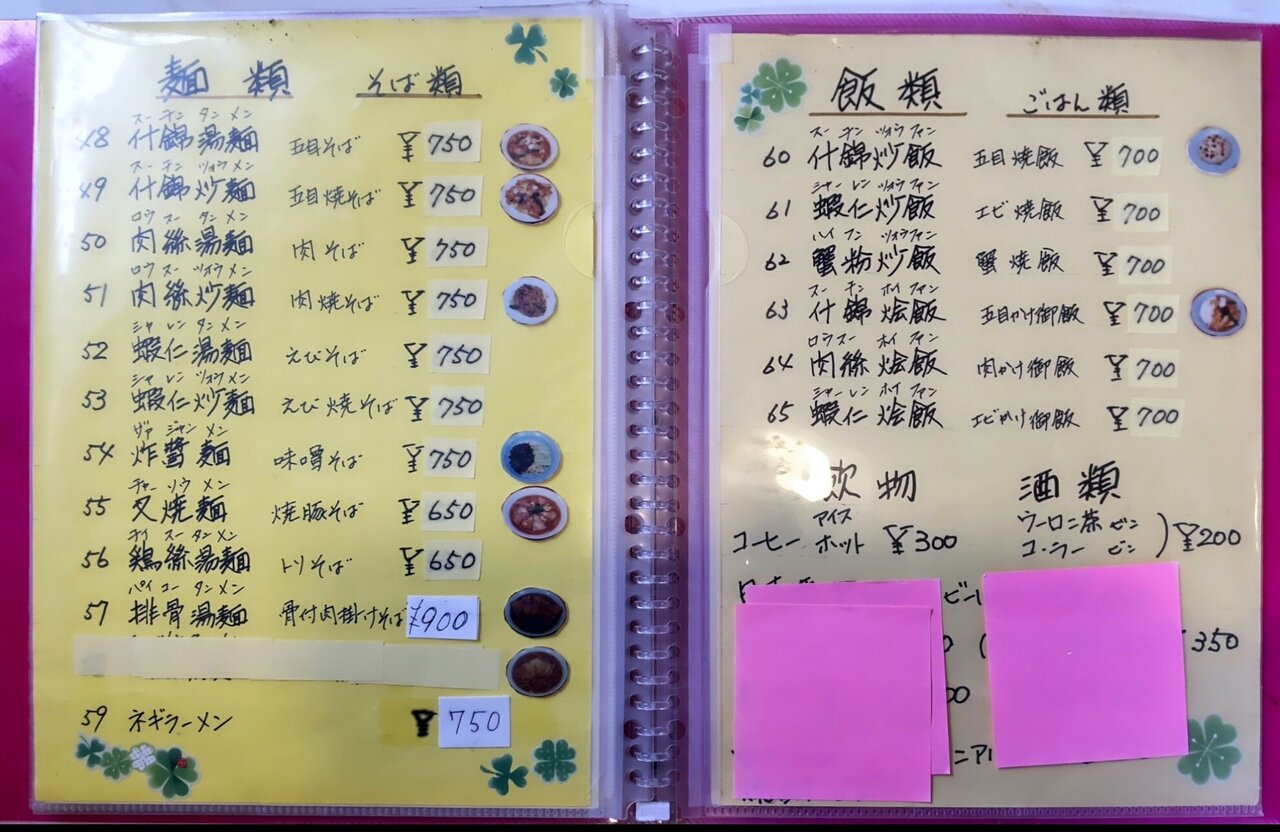 麺 類 そば類
スー チン タン メン
48 什錦湯麺 五目そば ¥750
スー チン ツォウ メン
49 什錦炒麺 五目焼そば ¥750
ロウ スー タン メン
50 肉絲湯麺 肉そば ¥750
ロウ スー ツォウ メン
51 肉絲炒麺 肉焼そば ¥750
シャ レン タン メン
52 蝦仁湯麺 えびそば ¥750
シャ レン ツォウ メン
53 蝦仁炒麺 えび焼そば ¥750
ザァ ジャン メン
54 炸醬麺 味噌そば ¥750
チャー ソウ メン
55 叉焼麺 焼豚そば ¥650
チイ スー タン メン
56 鶏絲湯麺 トリそば ¥650
パイ コー タン メン
57 排骨湯麺 骨付肉掛けそば ¥900
59 ネギラーメン ¥750
飯 類 ごはん類
スー チン ツォウ ファン
60 什錦炒飯 五目焼飯 ¥700
シャー レン ツォウ ファン
61 蝦仁炒飯 エビ焼飯 ¥700
ハイ フン ツォウファン
62 蟹粉炒飯 蟹焼飯 ¥700
スー チン ホイ ファン
63 什錦烩飯 五目かけ御飯 ¥700
ロウ スー ホイ ファン
64 肉絲烩飯 肉かけ御飯 ¥700
シャー レン ホイ ファン
65 蝦仁烩飯 エビかけ御飯 ¥700
飲物 酒類
コーヒー アイス ホット ¥300
ウーロン茶 ビン
コーラー ビン ) ¥200
ビン
350